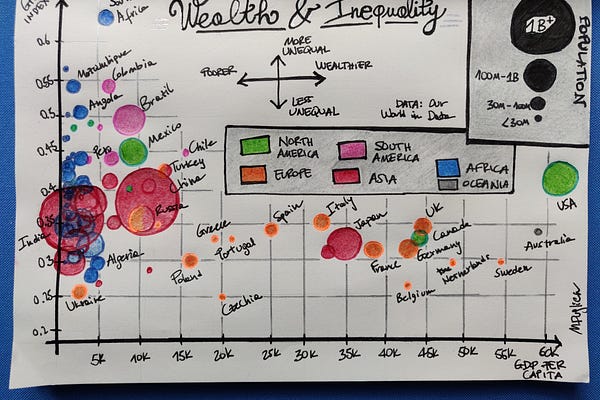 Wealth & Inequality
INDEX
MORE
UNEQUAL
POORER
WEALTHIER
LESS
UNEQUAL
DATA: Our
World in Data
1B+
100M-1B
30M-100M
<30M
POPULATION
NORTH
AMERICA
SOUTH
AMERICA
AFRICA
EUROPE
ASIA
OCEANIA
South
Africa
Mozambique
Colombia
Angola
Brazil
Mexico
Peru
Chile
Turkey
China
Russia
India
Algeria
Ukraine
Poland
Greece
Portugal
Czechia
Spain
Italy
Japan
France
UK
Canada
Germany
the
Netherlands
Belgium
Sweden
Australia
USA
0.6
0.55
0.5
0.45
0.4
0.35
0.3
0.25
0.2
5K
10K
15K
20K
25K
30K
35K
40K
45K
50K
55K
60K
GDP PER
CAPITA